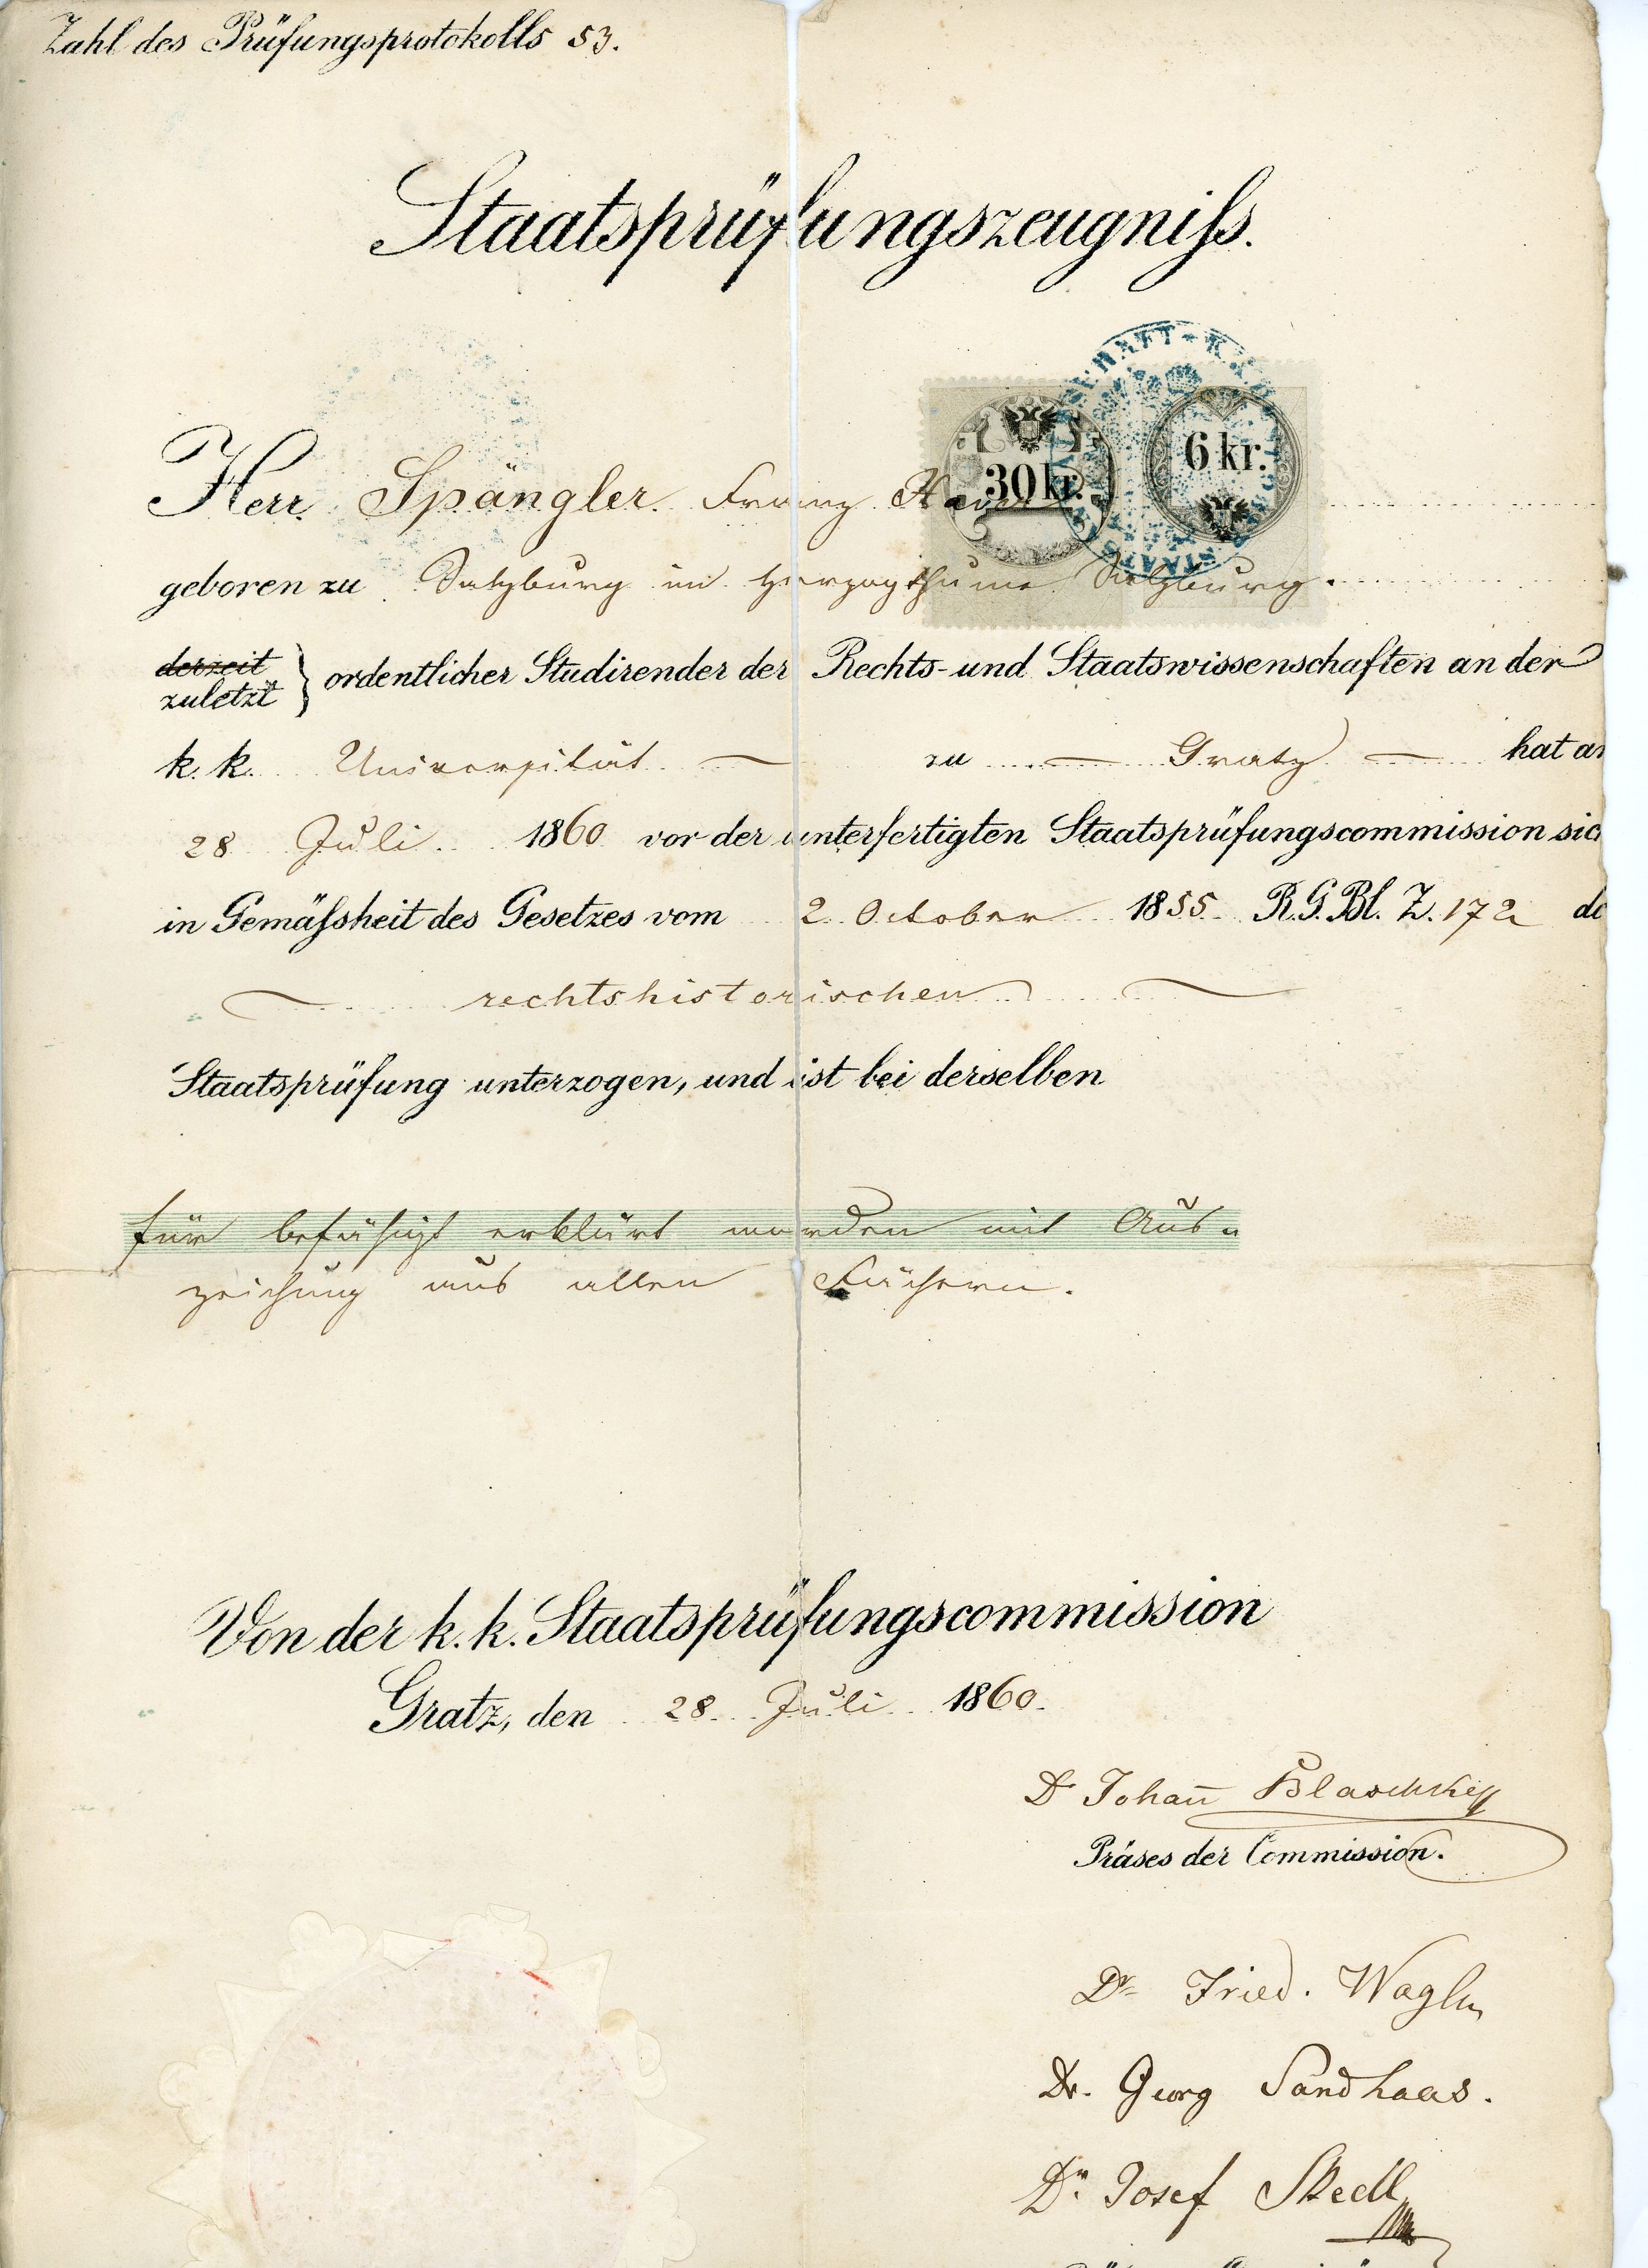 Zahl des Prüfungsprotokolls 53.
Staatsprüfungszeugniſs.
30 kr.
6 kr.
Herr Spängler Franz Xaver
geboren zu Salzburg im Herzogthume Salzburg.
derzeit
zuletzt } ordentlicher Studirender der Rechts- und Staatswissenschaften an der
k. k. Universität zu Gratz hat am
28 Juli 1860 vor der unterfertigten Staatsprüfungscommission sich
in Gemäſsheit des Gesetzes vom 2. October 1855. R. G. Bl. Z. 172 de
rechtshistorischen
Staatsprüfung unterzogen, und ist bei derselben
für befähigt erklärt worden mit Aus-
zeichung aus allen Fächern.
Von der k. k. Staatsprüfungscommission
Gratz, den 28. Juli 1860.
Dr Johan̅ Blaschke
Präses der Commission.
Dr Fried.
Dr. Georg Sandhaas.
Dr. Josef Skedl